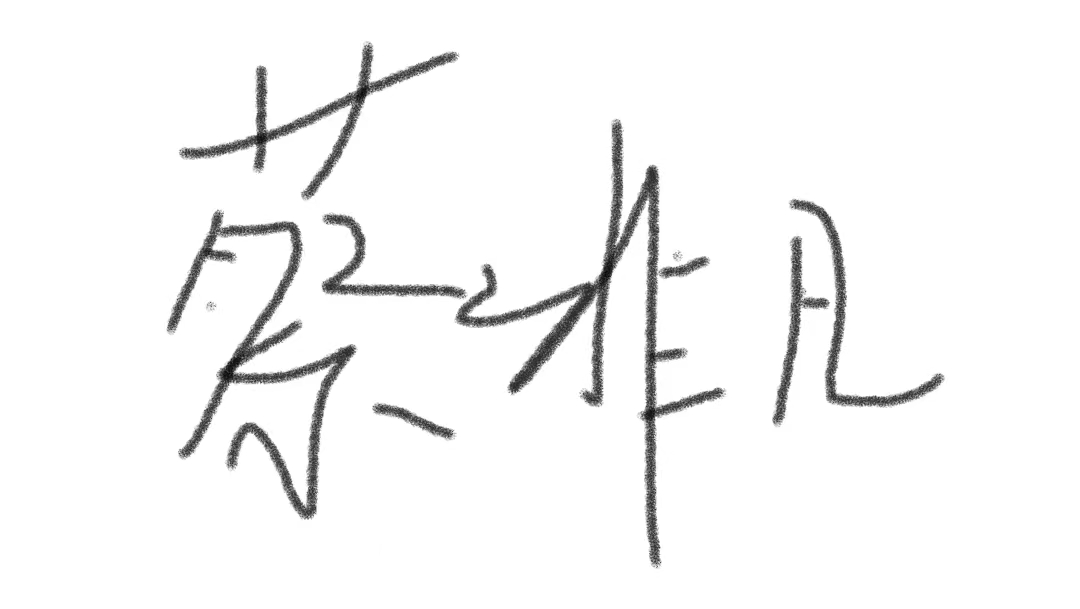 蔡非凡